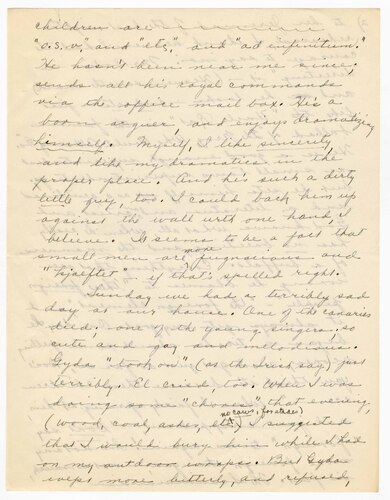 children are
"C.S.V.," and "etc," and "ad infinitum."
He hasn't been near me since;
sends all his royal commands
via the office mail box. He's a
born and enjoys dramatizing
himself. Myself, I like sincerity,
and like my dramatics in the
proper place. And he's such a dirty
little guy, too. I could back him up
against the wall with one hand, I
believe. It seems to be a fact that
small men are more pugnacious and
if that's spelled right.
Sunday we had a terribly sad
day at our house. One of the canaries
died; one of the young singers, so
cute and gay and melodious.
Gyda "took on" (as the Irish say) just
terribly. El cried, too. When I was
doing some "chores" that evening,
(wood, coal, ashes, etc. no cows, ) I suggested
that I would bury him while I had
on my outdoor wraps. But Gyda
wept more bitterly, and refused,